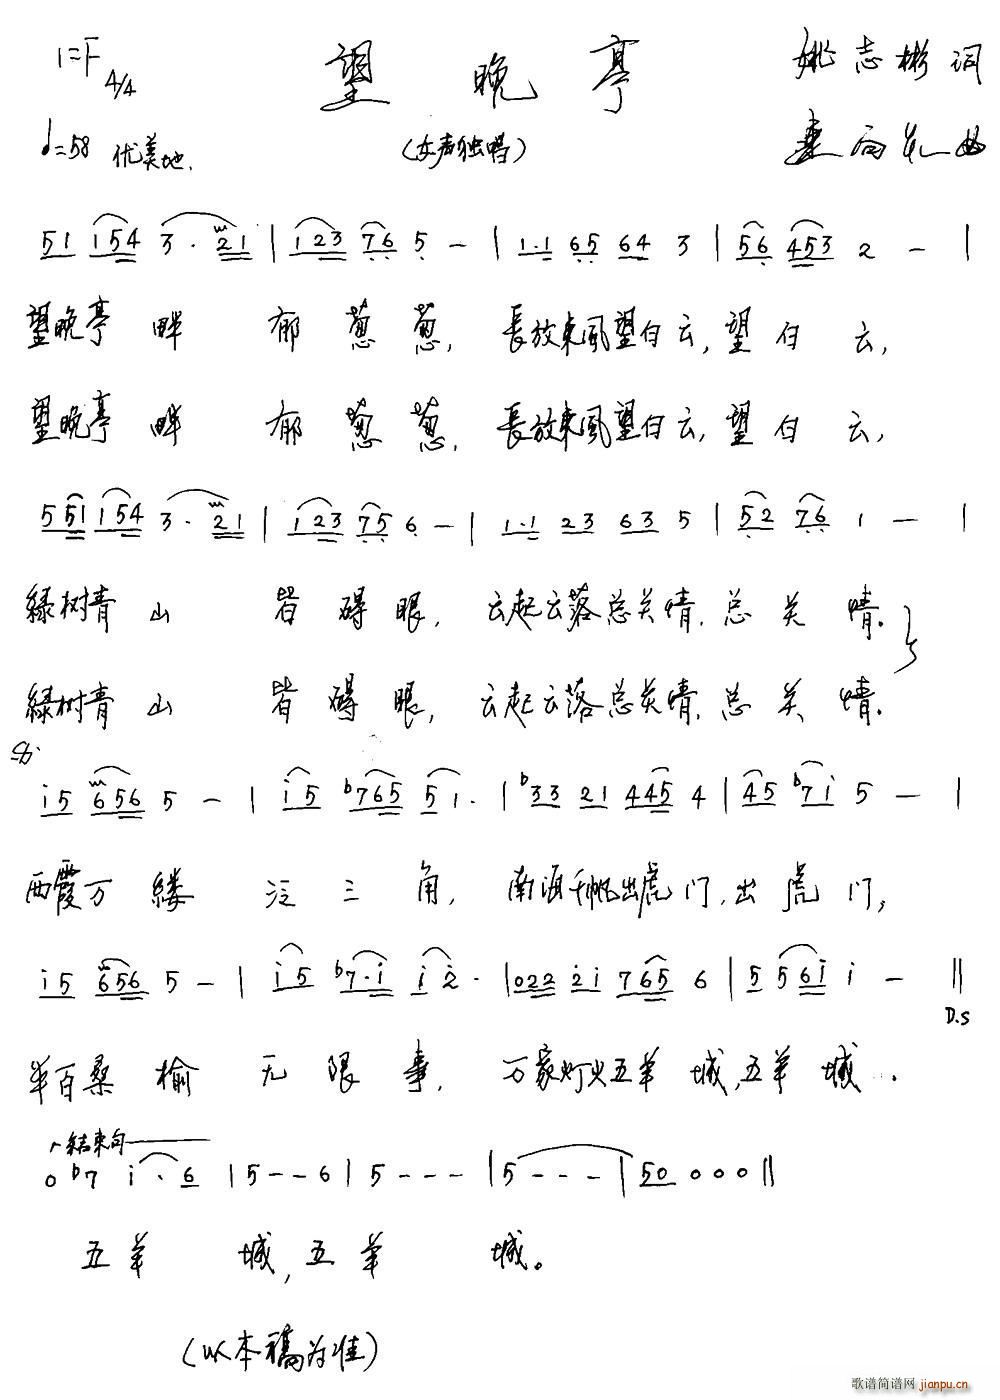 1=F 4/4 望晚亭 姚志彬词
♩=58 优美地. (女声独唱) 曲
51 154 3·21 | 123 76 5 - | 1·1 65 64 3 | 56 453 2 - |
望晚亭畔 郁葱葱, 長放東風望白云,望白云,
望晚亭畔 郁葱葱, 長放東風望白云,望白云,
551 154 3·21 | 123 75 6 - | 1·1 23 63 5 | 52 76 1 - |
緑树青山 皆碍眼, 云起云落总关情.总关情.
緑树青山 皆碍眼, 云起云落总关情.总关情.
i5 656 5 - | i5 b765 51· | b33 21 445 4 | 45 b7i 5 - |
西霞万缕 泛三角, 南海千帆出虎门,出虎门,
i5 656 5 - | i5 b7·i i2· | 022 2i 765 6 | 5 56i i - ‖
D.S
半百桑榆 无限事, 万家灯火五羊城,五羊城.
结束句
0 b7 i·6 | 5 - - 6 | 5 - - - | 5 - - - | 50 0 0 0 ‖
五羊城,五羊城。
(以本稿为准)
歌谱简谱网
jianpu.cn